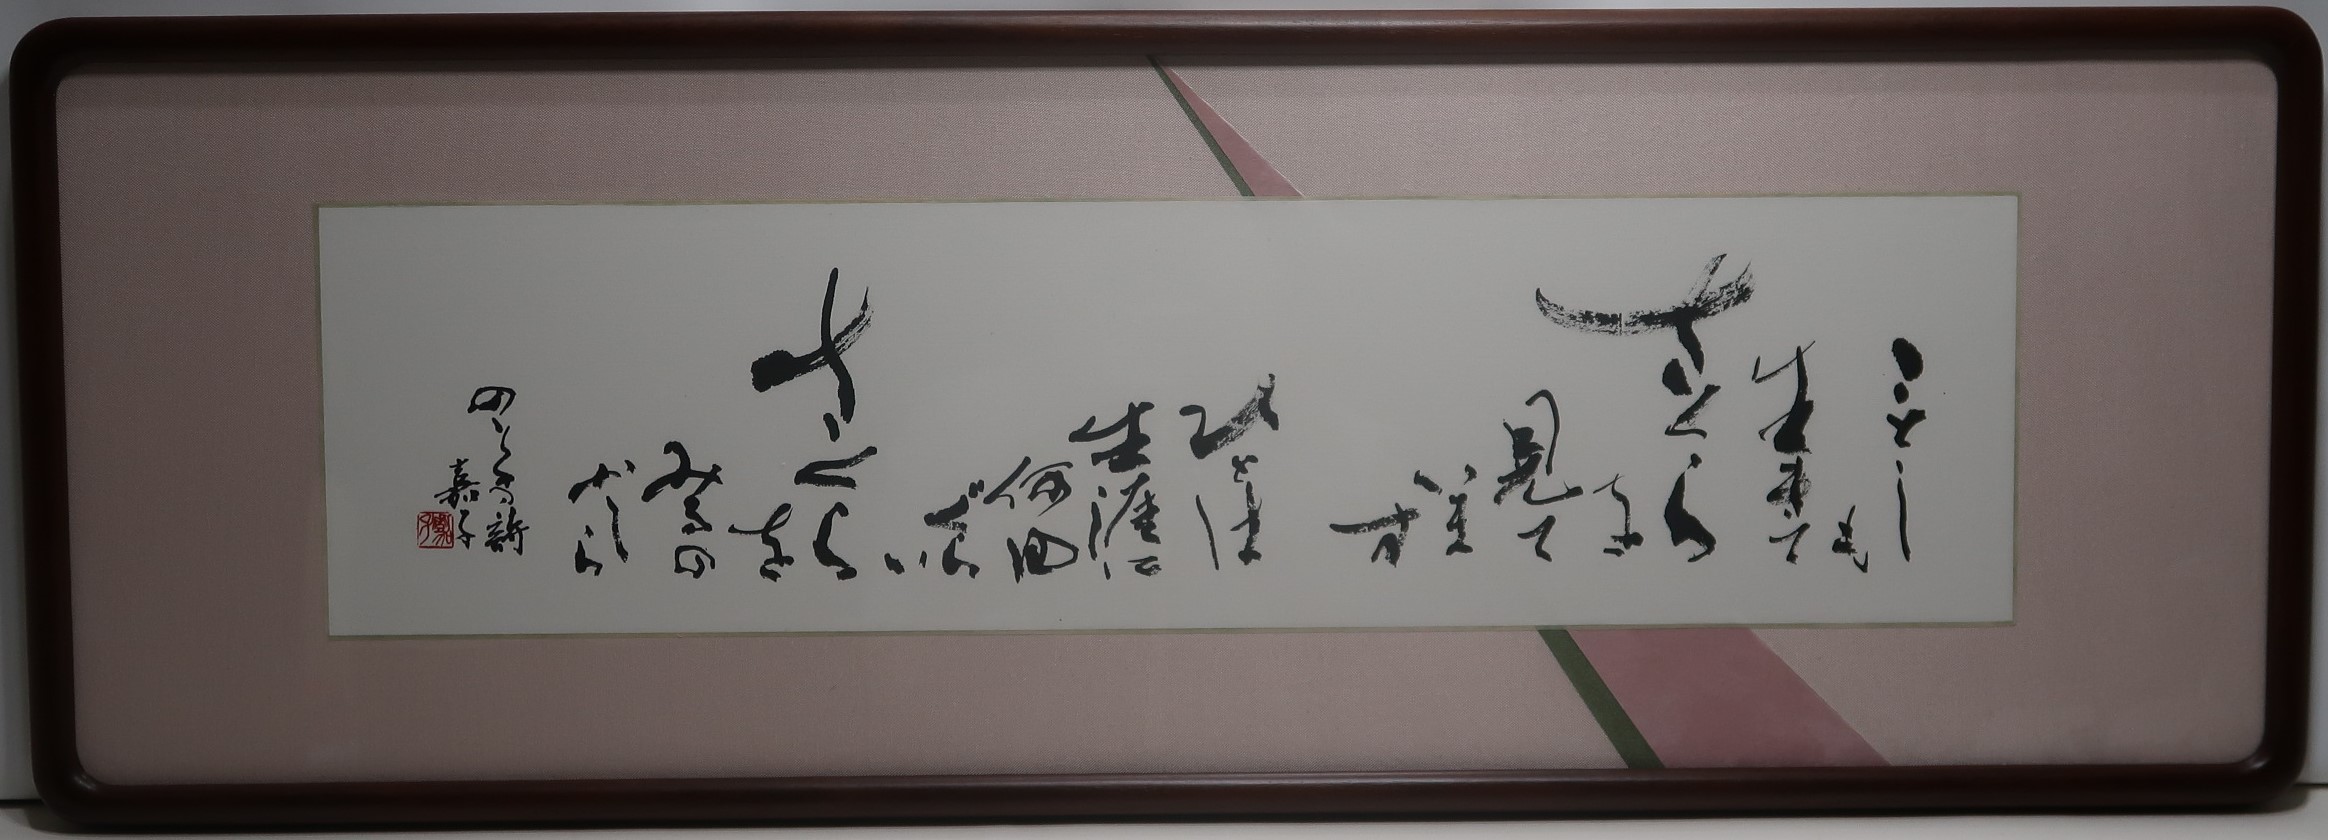 ことし
も
生きて
さくら
を
見て
いま
す
ひとは
生涯に
何回
ぐら
い
さくら
を
みるの
かしら
のり子詩
嘉子